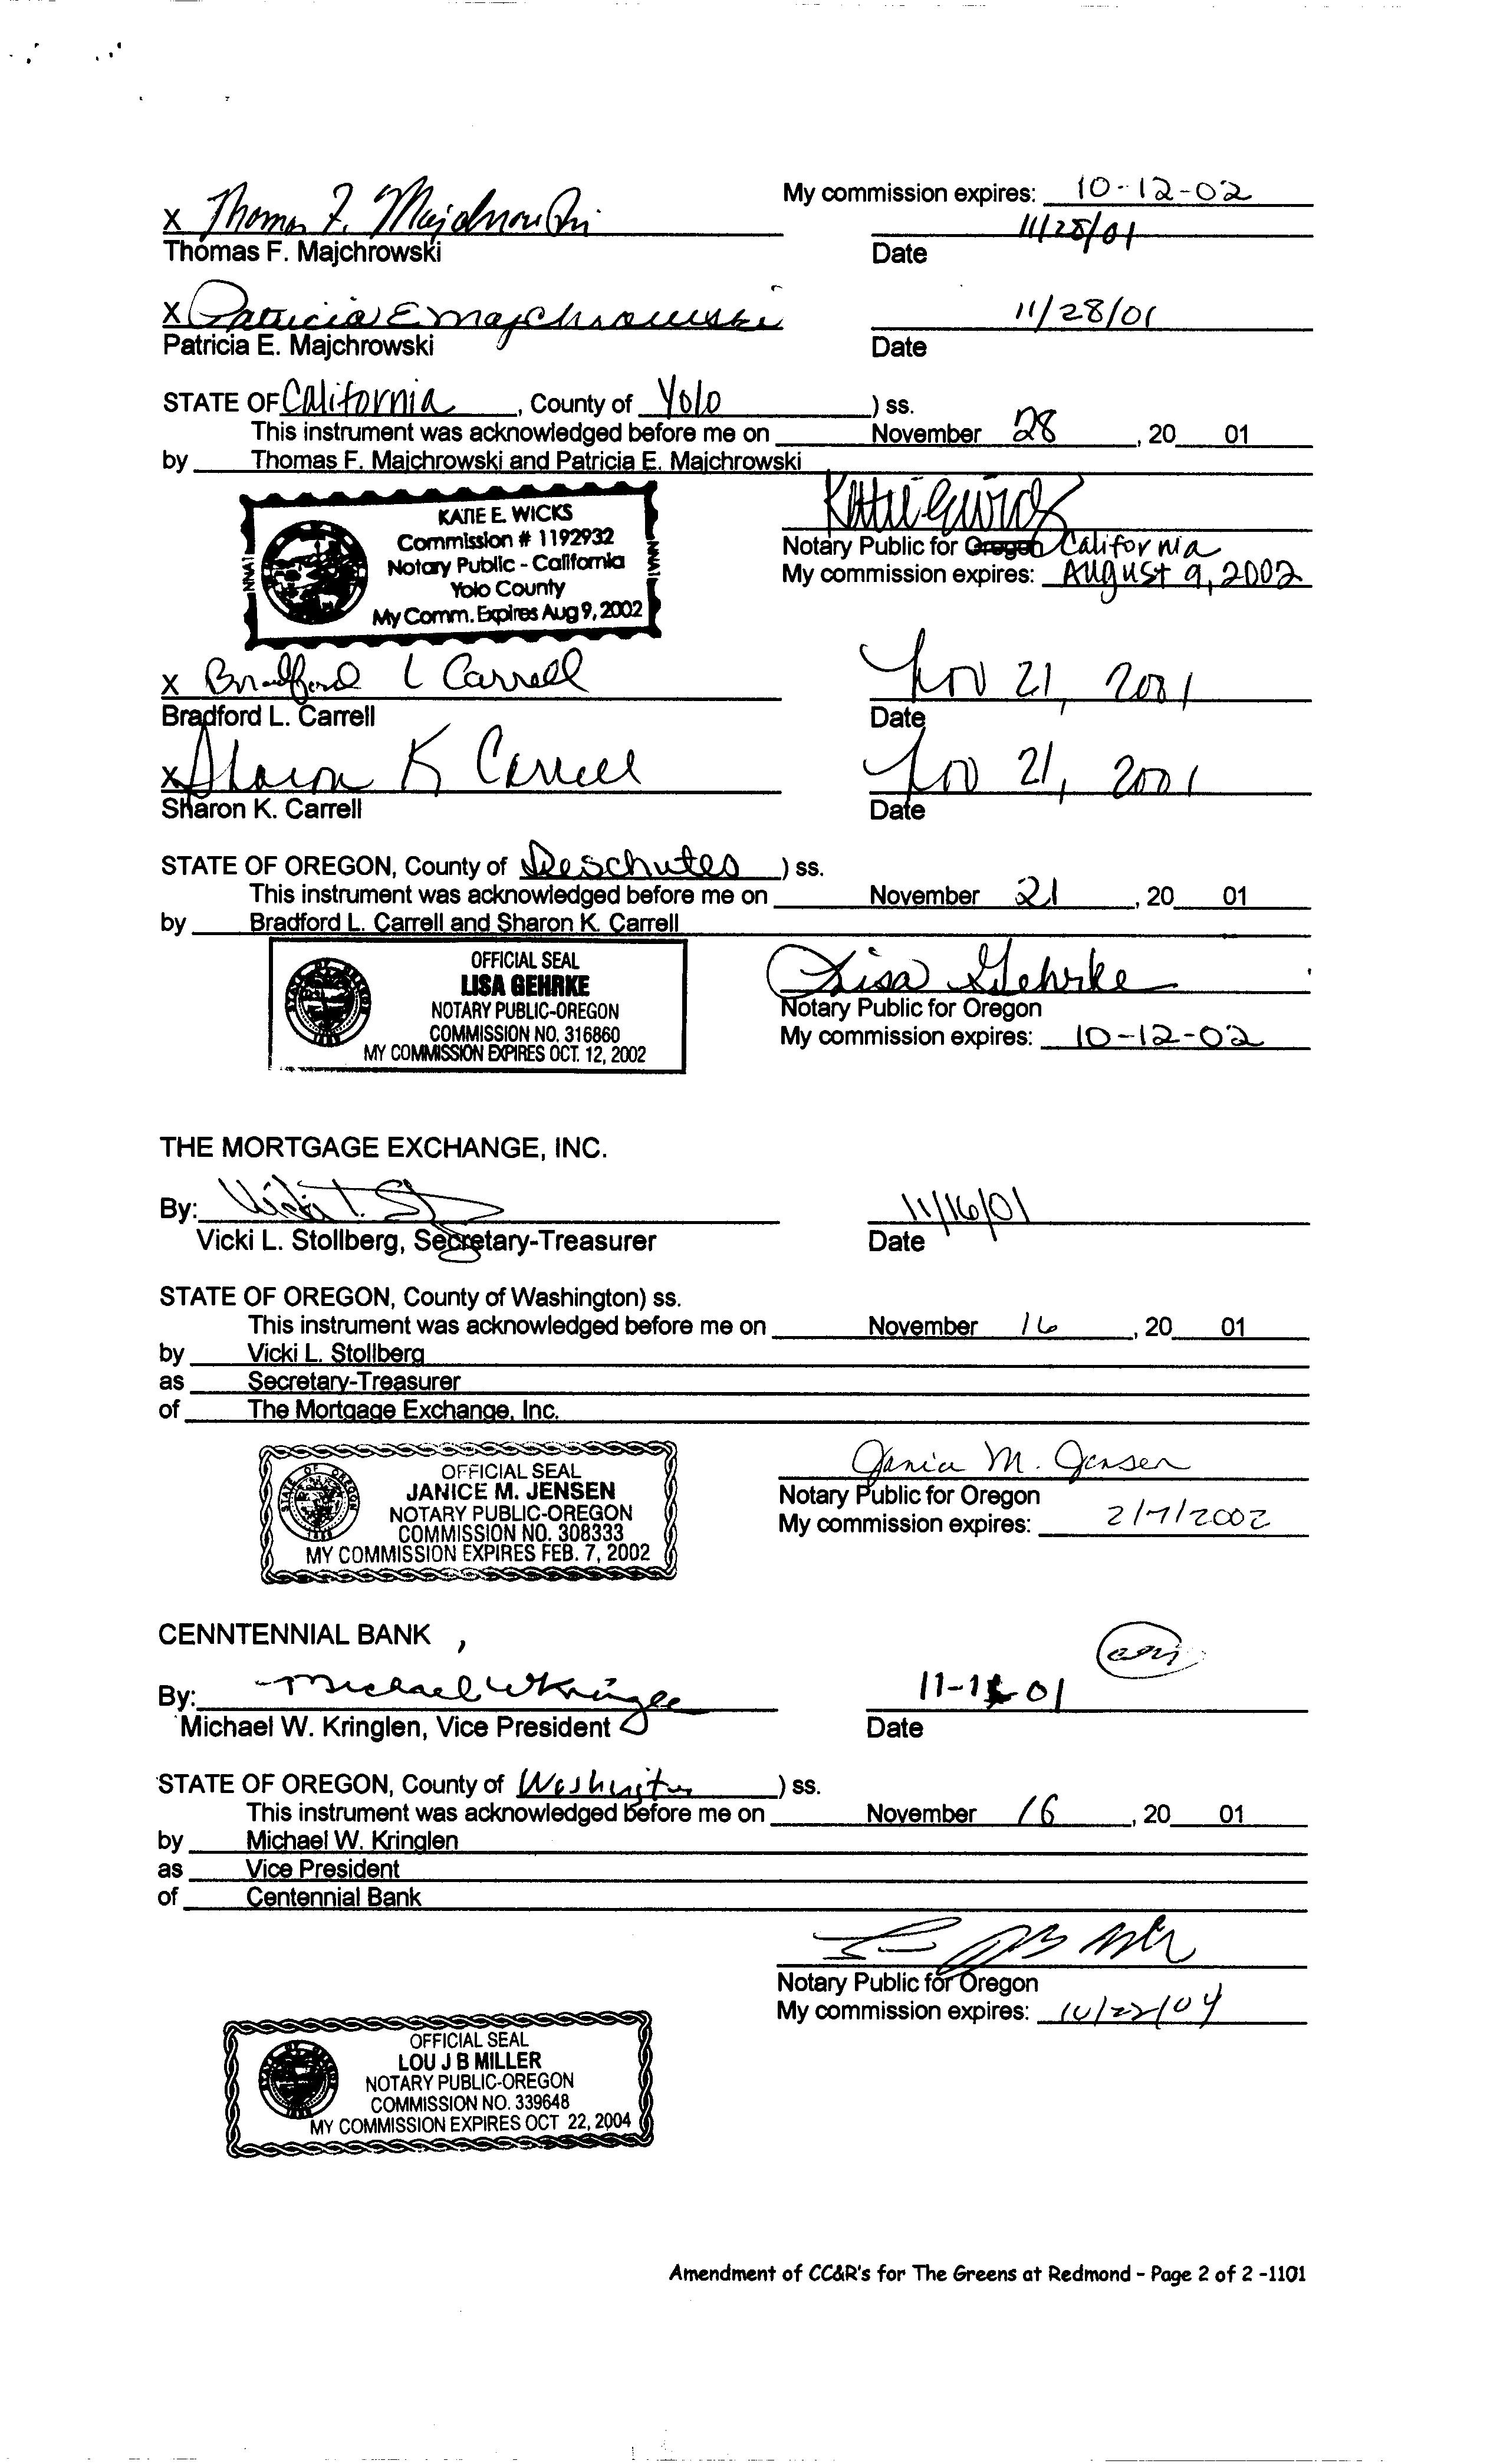 My commission expires: 10-12-02
X Thomas F. Majchrowski 11/28/01
Thomas F. Majchrowski Date
X Patricia E Majchrowski 11/28/01
Patricia E. Majchrowski Date
STATE OF California, County of Yolo ) ss.
This instrument was acknowledged before me on November 28, 20 01
by Thomas F. Majchrowski and Patricia E. Majchrowski
KATIE E. WICKS
Commission # 1192932
Notary Public - California
Yolo County
My Comm. Expires Aug 9, 2002
NNA1
NNA1
Katie E Wicks
Notary Public for Oregon California
My commission expires: August 9, 2002
X Bradford L Carrell Nov 21, 2001
Bradford L. Carrell Date
X Sharon K Carrell Nov 21, 2001
Sharon K. Carrell Date
STATE OF OREGON, County of Deschutes ) ss.
This instrument was acknowledged before me on November 21, 20 01
by Bradford L. Carrell and Sharon K. Carrell
OFFICIAL SEAL
LISA GEHRKE
NOTARY PUBLIC-OREGON
COMMISSION NO. 316860
MY COMMISSION EXPIRES OCT. 12, 2002
Lisa Gehrke
Notary Public for Oregon
My commission expires: 10-12-02
THE MORTGAGE EXCHANGE, INC.
By: 11/16/01
Vicki L. Stollberg, Secretary-Treasurer Date
STATE OF OREGON, County of Washington) ss.
This instrument was acknowledged before me on November 16, 20 01
by Vicki L. Stollberg
as Secretary-Treasurer
of The Mortgage Exchange, Inc.
STATE OF OREGON
OFFICIAL SEAL
JANICE M. JENSEN
NOTARY PUBLIC-OREGON
COMMISSION NO. 308333
MY COMMISSION EXPIRES FEB. 7, 2002
Janice M. Jensen
Notary Public for Oregon
My commission expires: 2/7/2002
CENNTENNIAL BANK ,
By: Michael W Kringlen 11- 01
Michael W. Kringlen, Vice President Date
STATE OF OREGON, County of Washington ) ss.
This instrument was acknowledged before me on November 16, 20 01
by Michael W. Kringlen
as Vice President
of Centennial Bank
Notary Public for Oregon
My commission expires: 10/22/04
OFFICIAL SEAL
LOU J B MILLER
NOTARY PUBLIC-OREGON
COMMISSION NO. 339648
MY COMMISSION EXPIRES OCT 22, 2004
Amendment of CC&R's for The Greens at Redmond - Page 2 of 2 -1101